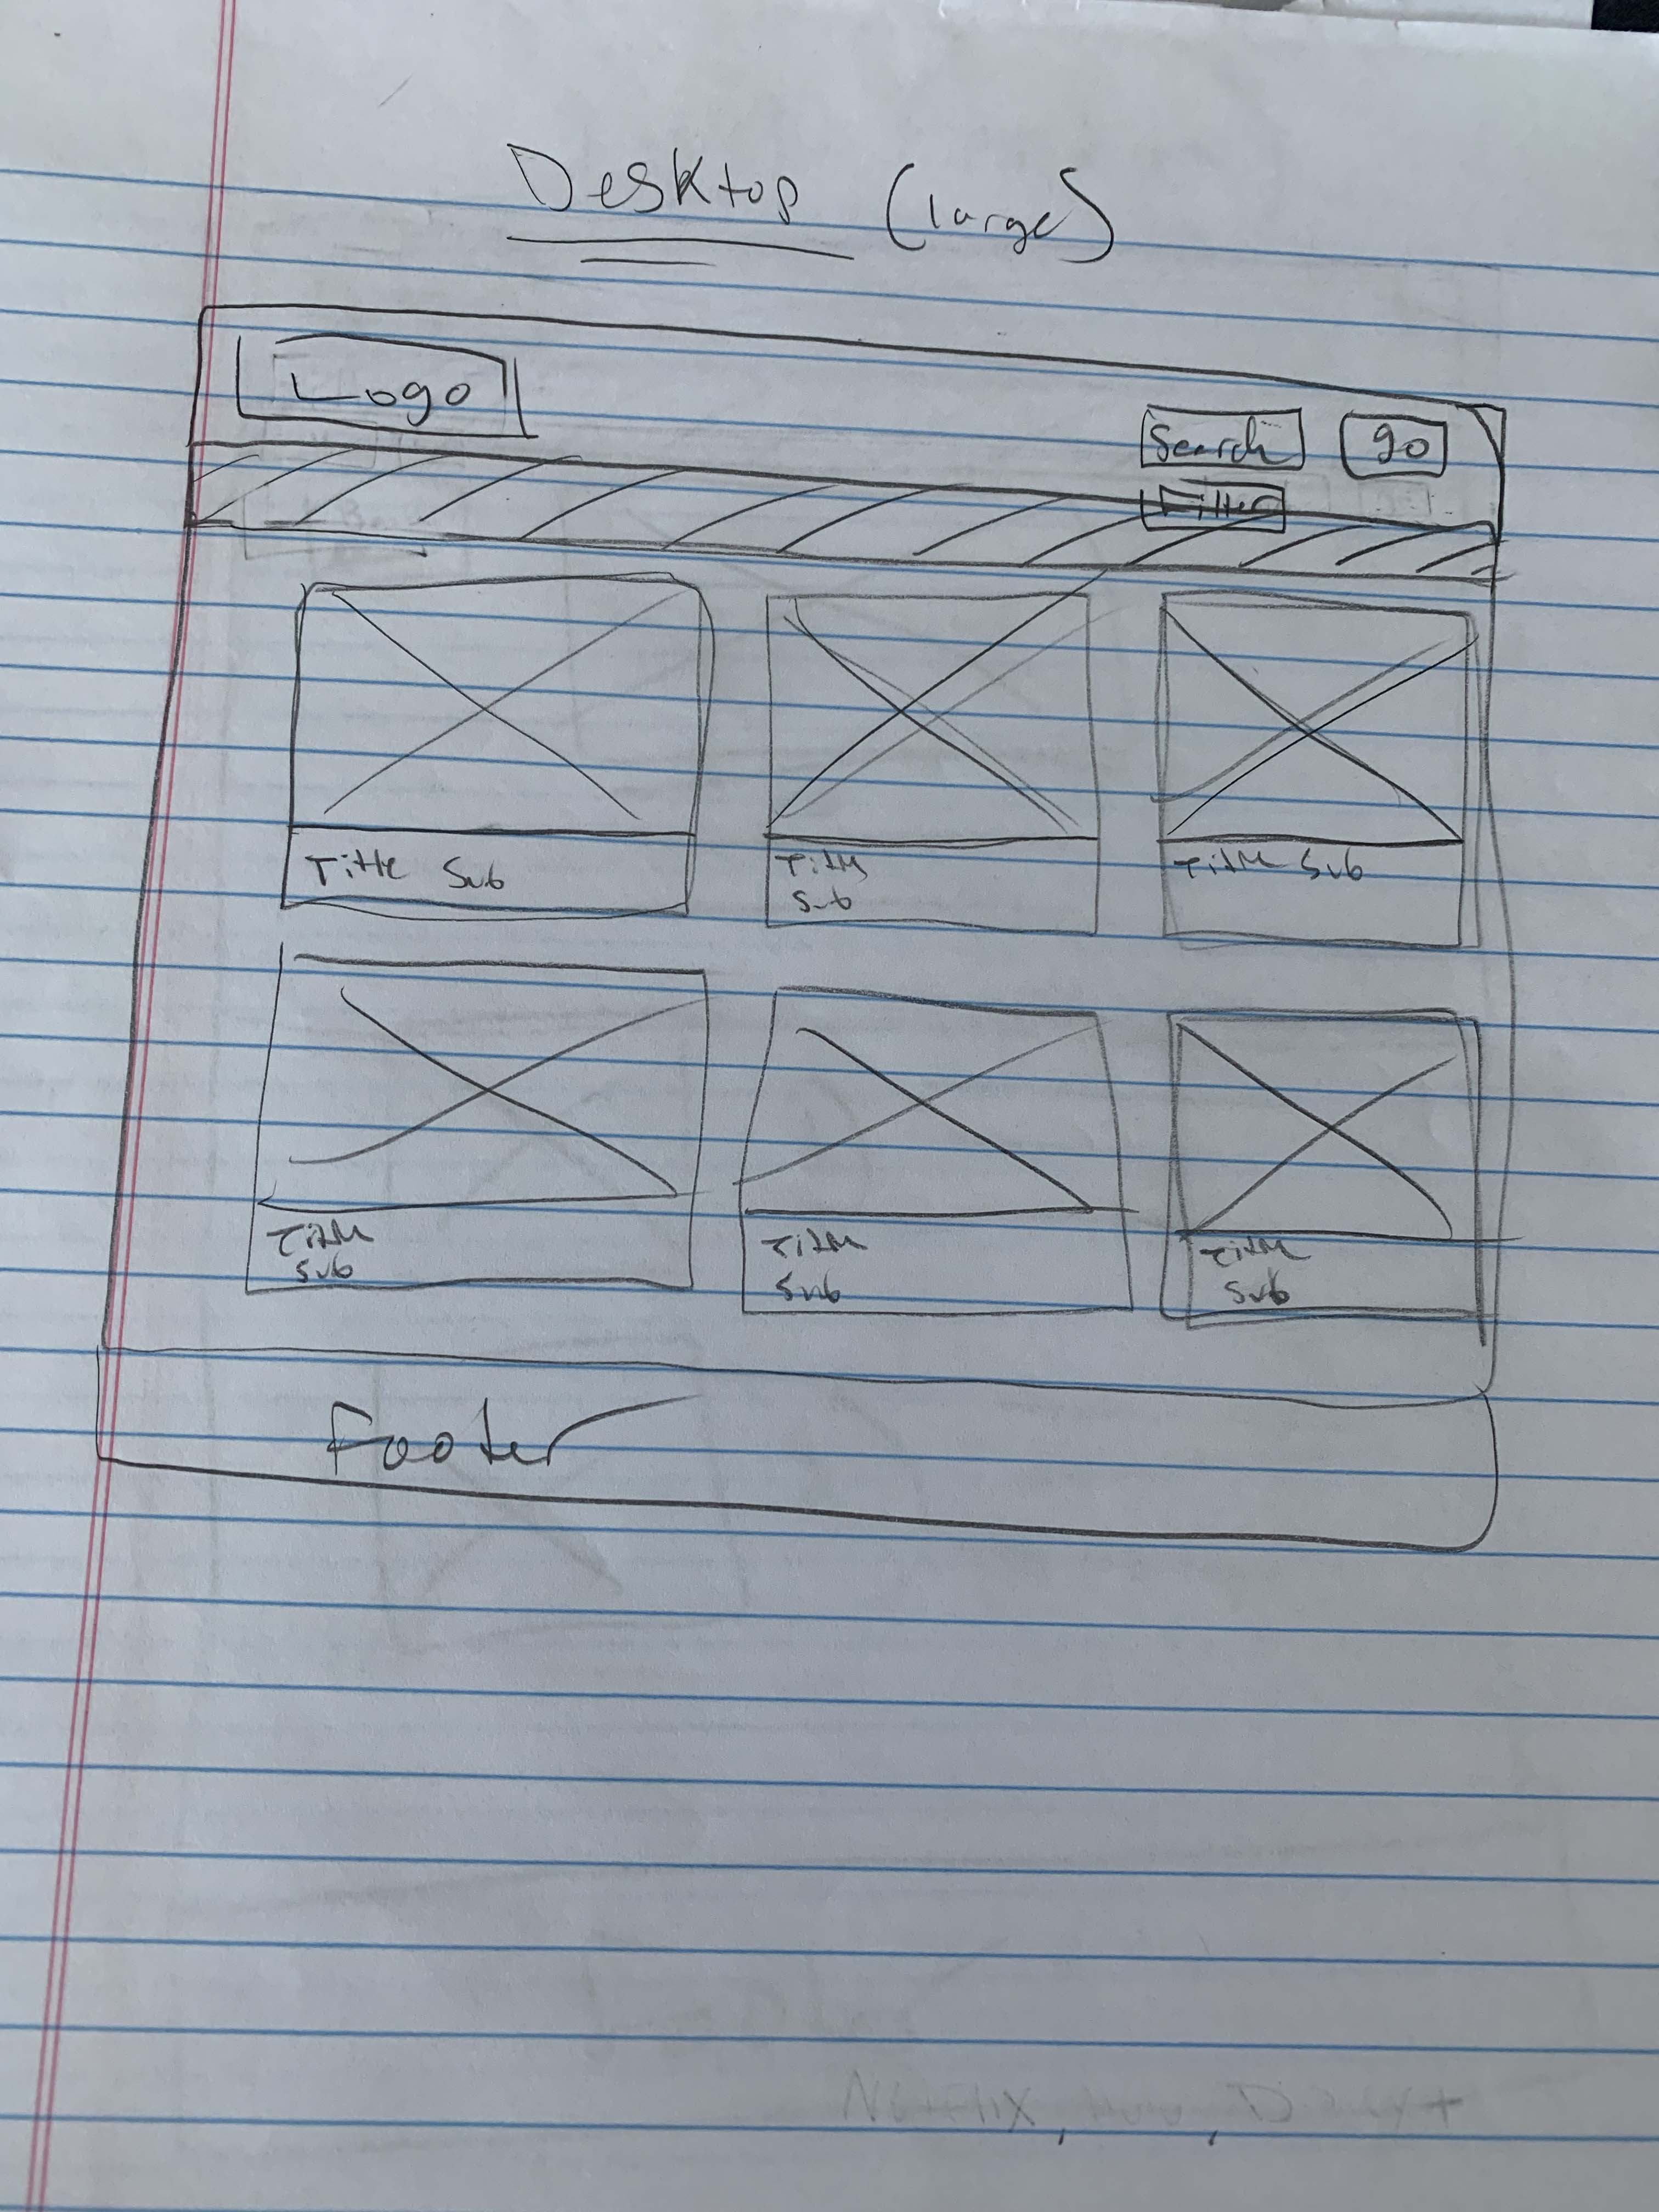 Desktop (large)
Logo
Search go
Filter
Title Sub
Title
Sub
Title Sub
Title
Sub
Title
Sub
Title
Sub
Footer